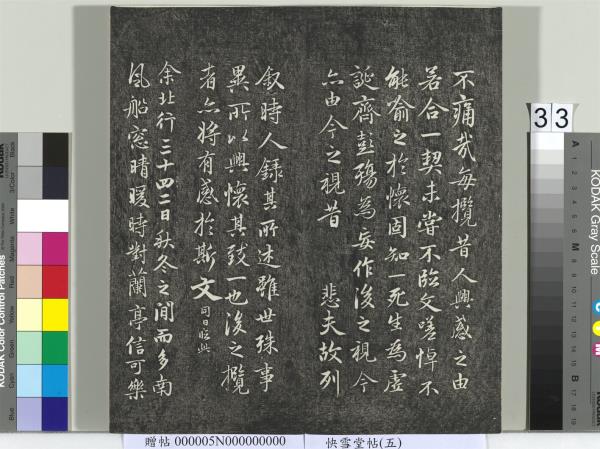 不痛哉每攬昔人興感之由
若合一契未嘗不臨文嗟悼不
能喻之於懷固知一死生為虛
誕齊彭殤為妄作後之視今
亦由今之視昔 悲夫故列
叙時人錄其所述雖世殊事
異所以興懷其致一也後之攬
者亦將有感於斯文
余北行三十二日秋冬之間而多南
風船窗晴暖時對蘭亭信可樂
33
KODAK Gray Scale
A
M
B
KODAK Color Control Patches
Blue
Cyan
Green
Yellow
Red
Magenta
White
3/Color
Black
贈帖 000005N000000000
快雪堂帖(五)